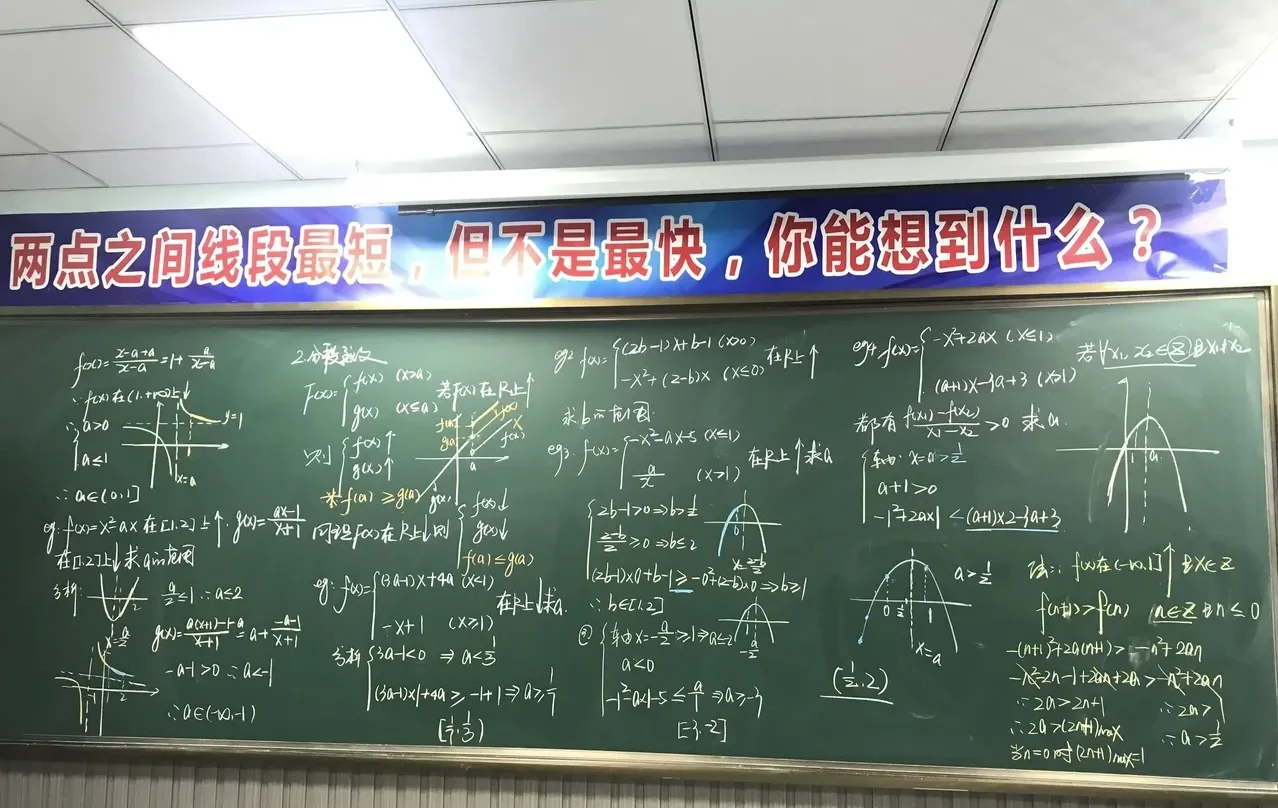 两点之间线段最短，但不是最快，你能想到什么？
f(x)=\frac{x-a+a}{x-a}=1+\frac{a}{x-a}
∵f(x)在(1,+∞)上↓
∴a>0
a≤1
y=1
x=a
∴a∈(0,1]
eg: f(x)=x²-ax在[1,2]上↑, g(x)=\frac{ax-1}{x+1}
在[1,2]上↓求a的范围
分析
2
x=\frac{a}{2}
\frac{a}{2}≤1 ∴a≤2
g(x)=\frac{a(x+1)-1-a}{x+1}=a+\frac{-a-1}{x+1}
-a-1>0 ∴a<-1
-1
1
2
∴a∈(-∞,-1)
2.分段函数
F(x)={f(x) (x>a)
g(x) (x≤a)
若F(x)在R上↑
则{f(x)↑
g(x)↑
*f(a)≥g(a)
f(a)
g(a)
f(x)
f(x)
g(x)
a
同理F(x)在R上↓则{f(x)↓
g(x)↓
f(a)≤g(a)
eg: f(x)={(3a-1)x+4a (x<1)
-x+1 (x≥1)
在R上↓求a.
分析{3a-1<0 ⇒a<\frac{1}{3}
(3a-1)×1+4a≥-1+1⇒a≥\frac{1}{7}
[\frac{1}{7},\frac{1}{3})
eg2 f(x)={(2b-1)x+b-1 (x>0)
-x²+(2-b)x (x≤0)
在R上↑
求b的范围.
eg3. f(x)={-x²-ax-5 (x≤1)
\frac{a}{x} (x>1)
在R上↑求a
{2b-1>0⇒b>\frac{1}{2}
\frac{2-b}{2}≥0⇒b≤2
(2b-1)×0+b-1≥-0²+(2-b)×0⇒b≥1
0
x=\frac{2-b}{2}
∴b∈[1,2]
②{轴x=-\frac{a}{2}≥1⇒a≤-2
a<0
-1²-a×1-5≤\frac{a}{1}⇒a≥-3
1
-\frac{a}{2}
[-3,-2]
eg4. f(x)={-x²+2ax (x≤1)
(a+1)x-3a+3 (x>1)
若∀x₁,x₂∈Z且x₁≠x₂
都有\frac{f(x₁)-f(x₂)}{x₁-x₂}>0 求a.
{轴: x=a>\frac{1}{2}
a+1>0
-1²+2a×1≤(a+1)×2-3a+3
1
a
0
\frac{1}{2}
1
x=a
a>\frac{1}{2}
(\frac{1}{2},2)
法二: f(x)在(-∞,1]↑且x∈Z
f(n+1)>f(n) n∈Z且n≤0
-(n+1)²+2a(n+1)>-n²+2an
-n²-2n-1+2an+2a>-n²+2an
∴2a>2n+1
∴2a>1
∴2a>(2n+1)max
∴a>\frac{1}{2}
当n=0时(2n+1)max=1